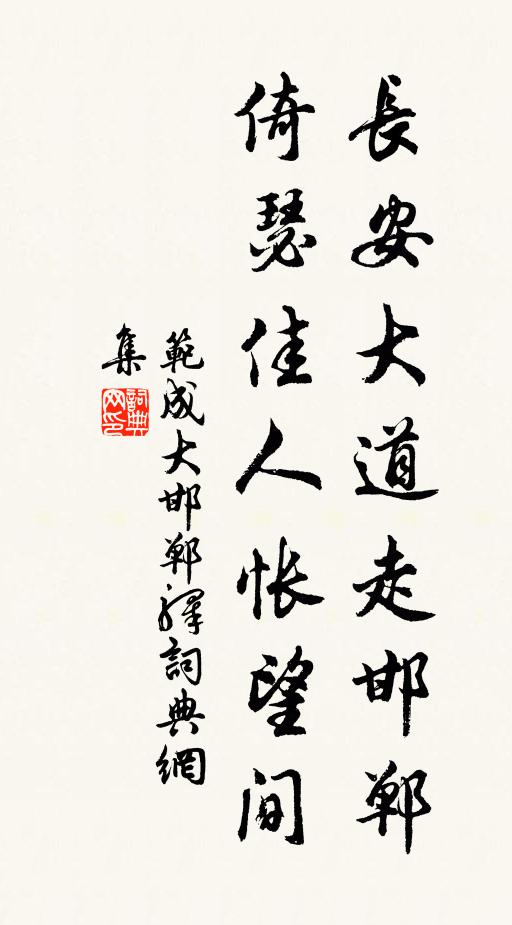 長安大道走邯鄲
倚瑟佳人悵望間
範成大邯鄲驛詞典網
集
詞典
网印